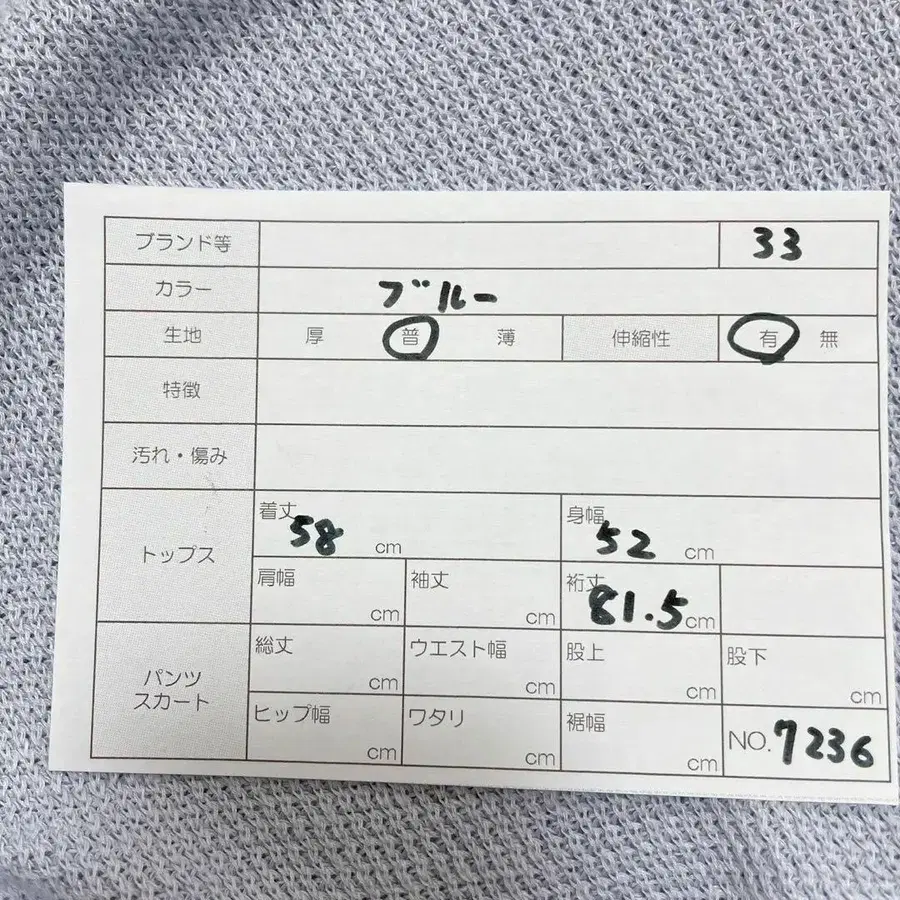 ブランド等 33
カラー ブルー
生地 厚 普 薄 伸縮性 有 無
特徴
汚れ・傷み
トップス
着丈 58 cm 身幅 52 cm
肩幅 cm 袖丈 cm 裄丈 81.5 cm
パンツ
スカート
総丈 cm ウエスト幅 cm 股上 cm 股下 cm
ヒップ幅 cm ワタリ cm 裾幅 cm NO. 7236